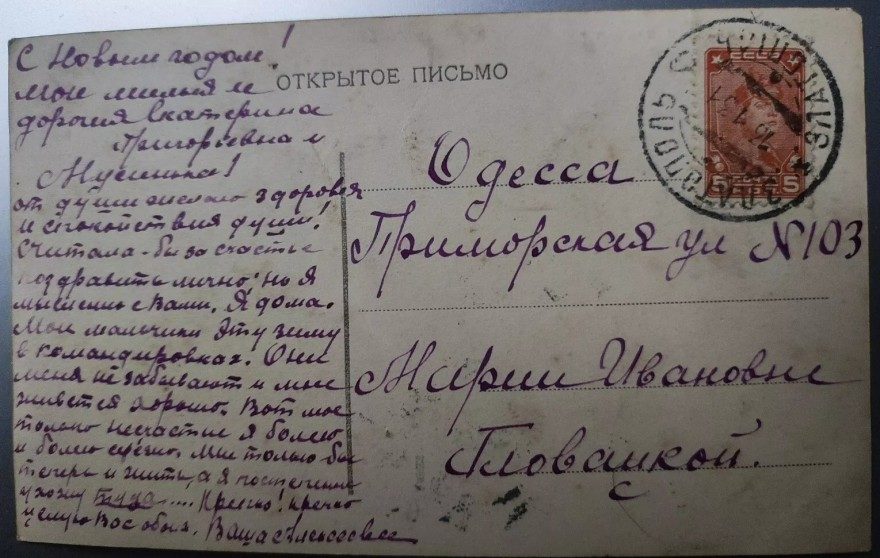 С Новым годом!
Мои милыя и
дорогия Екатерина
Григорьевна и
Мусинька!
от души желаю здоровья
и спокойствия души!
Считала-бы за счастье
поздравить лично; но я
мысленно с Вами. Я дома.
Мои мальчики эту зиму
в командировках. Они
меня не забывают и мне
живется хорошо. Вот мое
только несчастие я болею
и болею серьезно. Мне только бы
теперь и жить, а я постепенно
ухожу туда.... Крепко! крепко
целую Вас обоих. Ваша
ОТКРЫТОЕ ПИСЬМО
Одесса
Приморская ул N103
Марии Ивановне
Гловацкой.
5 5